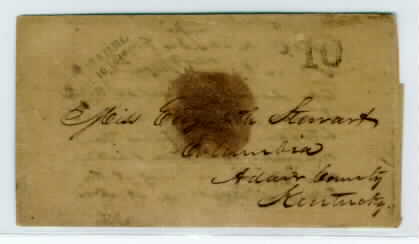 10
Miss Elizabeth Stewart
Columbia
Adair County
Kentucky.